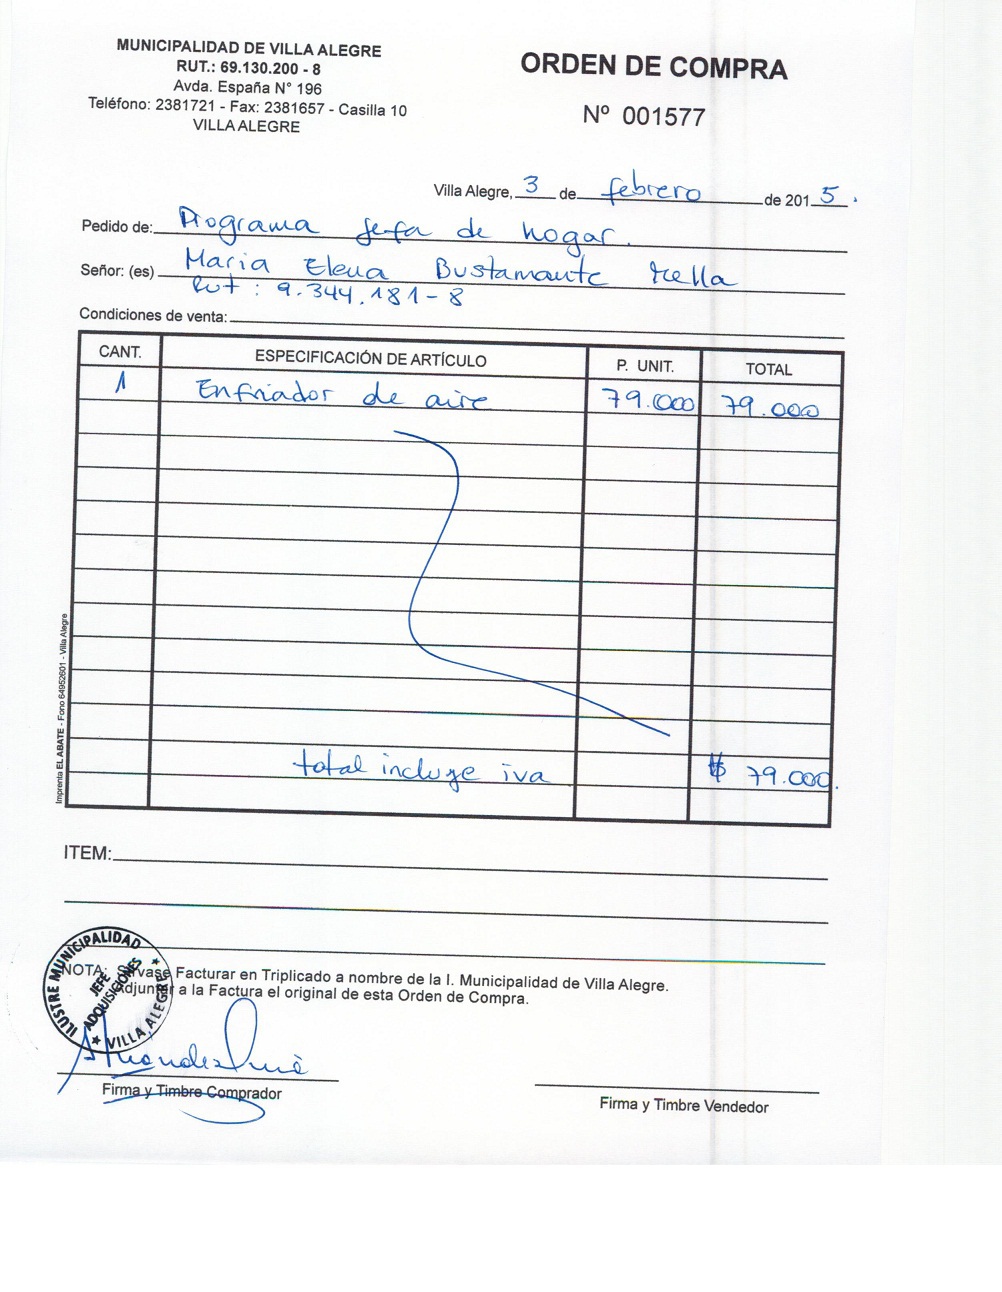 MUNICIPALIDAD DE VILLA ALEGRE
RUT.: 69.130.200 - 8
Avda. España N° 196
Teléfono: 2381721 - Fax: 2381657 - Casilla 10
VILLA ALEGRE
ORDEN DE COMPRA
Nº 001577
Villa Alegre, 3 de febrero de 2015.
Pedido de: Programa Jefa de hogar.
Señor: (es) Maria Elena Bustamante
Rut : 9.344.181-8
Condiciones de venta:
CANT. ESPECIFICACIÓN DE ARTÍCULO P. UNIT. TOTAL
1 Enfriador de aire 79.000 79.000
total incluye iva $ 79.000.
Imprenta EL ABATE - Fono 64952601 - Villa Alegre
ITEM:
NOTA: Sírvase Facturar en Triplicado a nombre de la I. Municipalidad de Villa Alegre.
Adjuntar a la Factura el original de esta Orden de Compra.
ILUSTRE MUNICIPALIDAD
JEFE
ADQUISICIONES
★ VILLA ALEGRE ★
Firma y Timbre Comprador
Firma y Timbre Vendedor